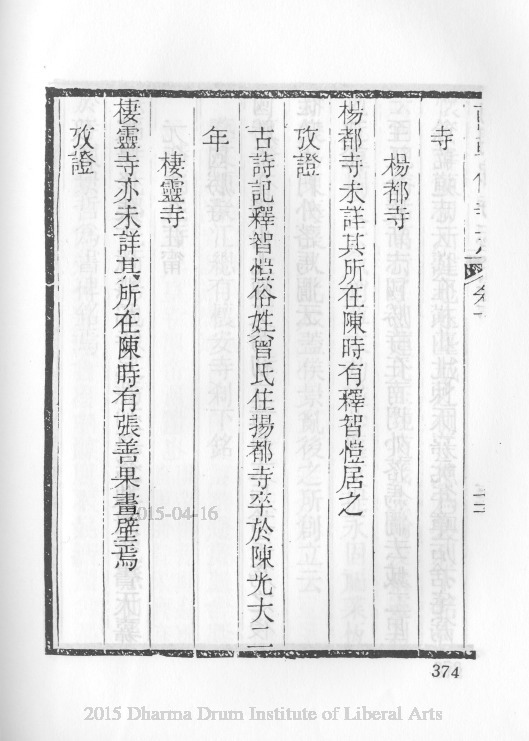 寺
楊都寺
楊都寺未詳其所在陳時有釋智愷居之
攷證
古詩記釋智愷俗姓曾氏住揚都寺卒於陳光大二
年
棲靈寺
棲靈寺亦未詳其所在陳時有張善果畫壁焉
攷證
2015-04-16
374
2015 Dharma Drum Institute of Liberal Arts